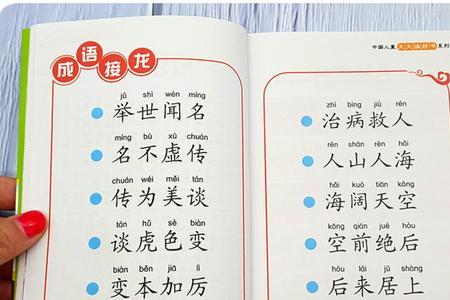 成语接龙
jǔ shì wén míng
举世闻名
míng bù xū chuán
名不虚传
chuán wéi měi tán
传为美谈
tán hǔ sè biàn
谈虎色变
biàn běn jiā lì
变本加厉
中国儿童天天读好书系列
zhì bìng jiù rén
治病救人
rén shān rén hǎi
人山人海
hǎi kuò tiān kōng
海阔天空
kōng qián jué hòu
空前绝后
hòu lái jū shàng
后来居上